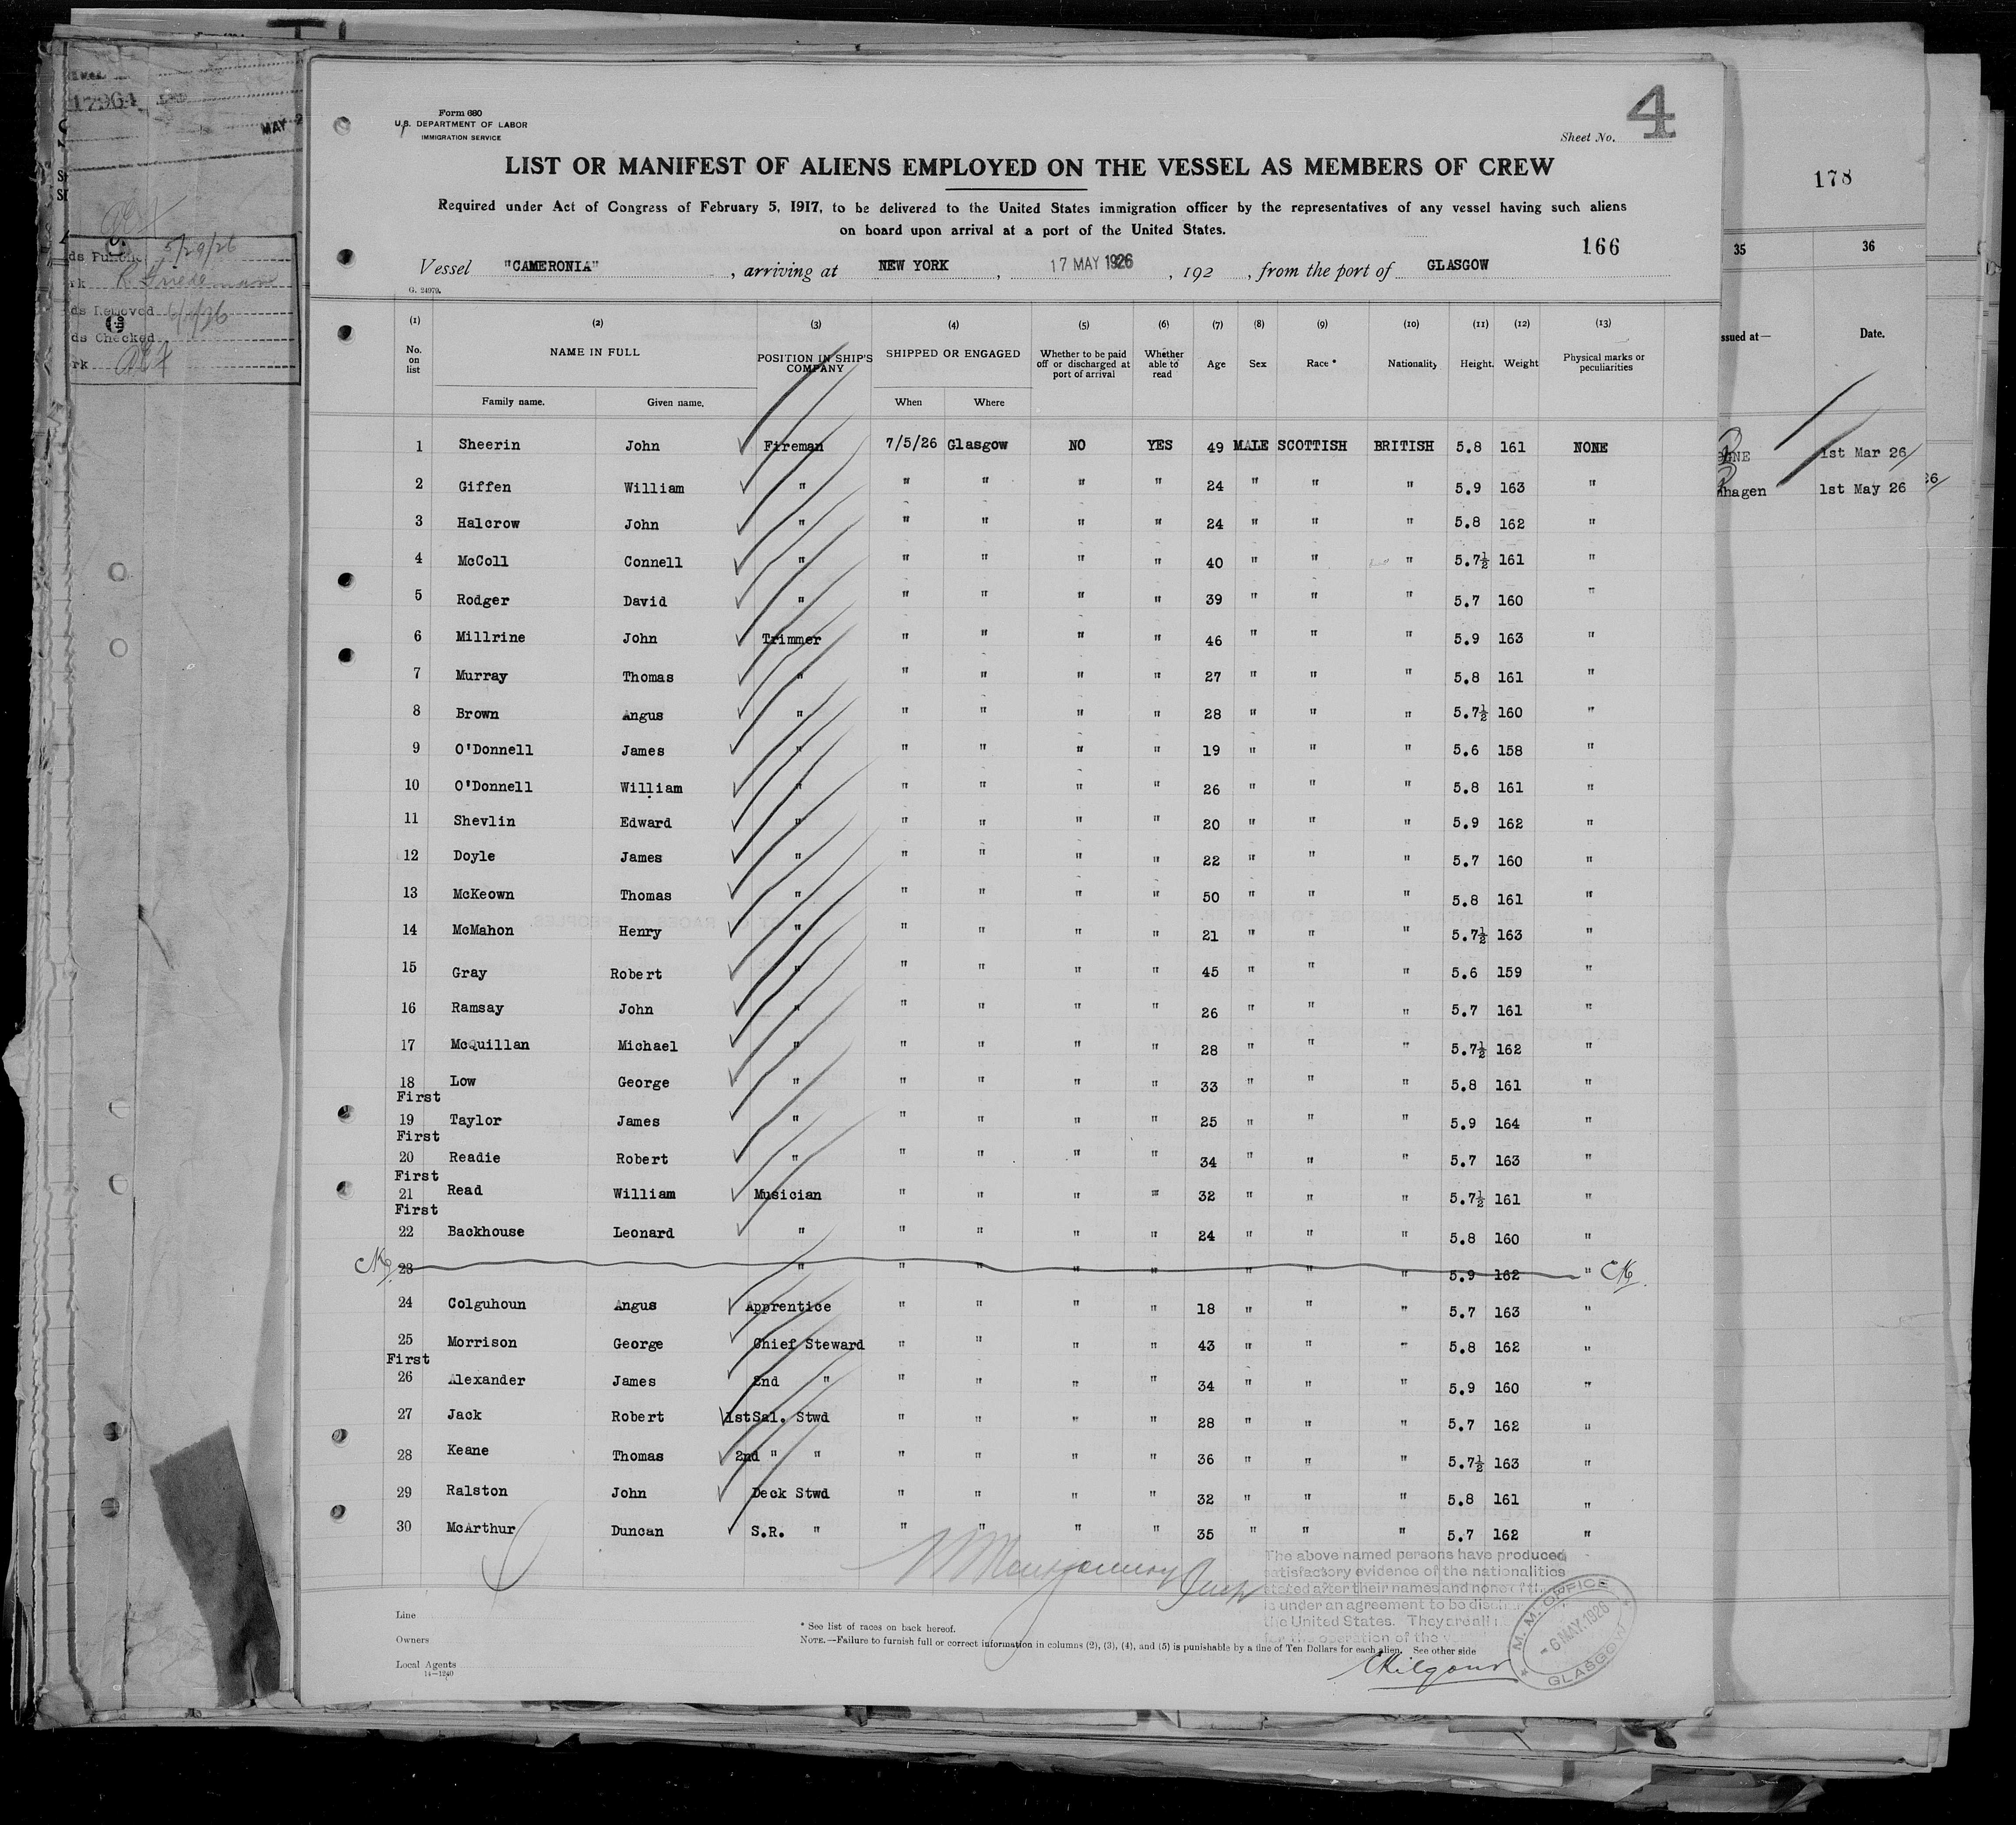 Form 680
U.S. DEPARTMENT OF LABOR
IMMIGRATION SERVICE
Sheet No. 4
LIST OR MANIFEST OF ALIENS EMPLOYED ON THE VESSEL AS MEMBERS OF CREW
Required under Act of Congress of February 5, 1917, to be delivered to the United States immigration officer by the representatives of any vessel having such aliens
on board upon arrival at a port of the United States.
166
Vessel "CAMERONIA", arriving at NEW YORK, 17 MAY 1926, 192 , from the port of GLASGOW
G. 24979.
(1) (2) (3) (4) (5) (6) (7) (8) (9) (10) (11) (12) (13)
No. on list NAME IN FULL POSITION IN SHIP'S COMPANY SHIPPED OR ENGAGED Whether to be paid off or discharged at port of arrival Whether able to read Age Sex Race * Nationality Height. Weight Physical marks or peculiarities
Family name. Given name. When Where
1 Sheerin John Fireman 7/5/26 Glasgow NO YES 49 MALE SCOTTISH BRITISH 5.8 161 NONE
2 Giffen William " " " " " 24 " " " 5.9 163 "
3 Halcrow John " " " " " 24 " " " 5.8 162 "
4 McColl Connell " " " " " 40 " " " 5.7½ 161 "
5 Rodger David " " " " " 39 " " " 5.7 160 "
6 Millrine John Trimmer " " " " 46 " " " 5.9 163 "
7 Murray Thomas " " " " " 27 " " " 5.8 161 "
8 Brown Angus " " " " " 28 " " " 5.7½ 160 "
9 O'Donnell James " " " " " 19 " " " 5.6 158 "
10 O'Donnell William " " " " " 26 " " " 5.8 161 "
11 Shevlin Edward " " " " " 20 " " " 5.9 162 "
12 Doyle James " " " " " 22 " " " 5.7 160 "
13 McKeown Thomas " " " " " 50 " " " 5.8 161 "
14 McMahon Henry " " " " " 21 " " " 5.7½ 163 "
15 Gray Robert " " " " " 45 " " " 5.6 159 "
16 Ramsay John " " " " " 26 " " " 5.7 161 "
17 McQuillan Michael " " " " " 28 " " " 5.7½ 162 "
18 Low George " " " " " 33 " " " 5.8 161 "
First
19 Taylor James " " " " " 25 " " " 5.9 164 "
First
20 Readie Robert " " " " " 34 " " " 5.7 163 "
First
21 Read William Musician " " " " 32 " " " 5.7½ 161 "
First
22 Backhouse Leonard " " " " " 24 " " " 5.8 160 "
23 " " " " " " " " 5.9 162 "
24 Colguhoun Angus Apprentice " " " " 18 " " " 5.7 163 "
25 Morrison George Chief Steward " " " " 43 " " " 5.8 162 "
First
26 Alexander James 2nd " " " " " 34 " " " 5.9 160 "
27 Jack Robert 1stSal. Stwd " " " " 28 " " " 5.7 162 "
28 Keane Thomas 2nd " " " " " " 36 " " " 5.7½ 163 "
29 Ralston John Deck Stwd " " " " 32 " " " 5.8 161 "
30 McArthur Duncan S.R. " " " " " 35 " " " 5.7 162 "
The above named persons have produced
satisfactory evidence of the nationalities
stated after their names and none of
is under an agreement to be
the United States. They are all
for the operation of the
M.M. OFFICE
6 MAY. 1926
GLASGOW
Line
Owners
Local Agents
14-1240
* See list of races on back hereof.
NOTE.—Failure to furnish full or correct information in columns (2), (3), (4), and (5) is punishable by a fine of Ten Dollars for each alien. See other side
178
35 36
ssued at— Date.
1st Mar 26
hagen 1st May 26
MAY
5/29/26
ds Removed
ds Checked
rk